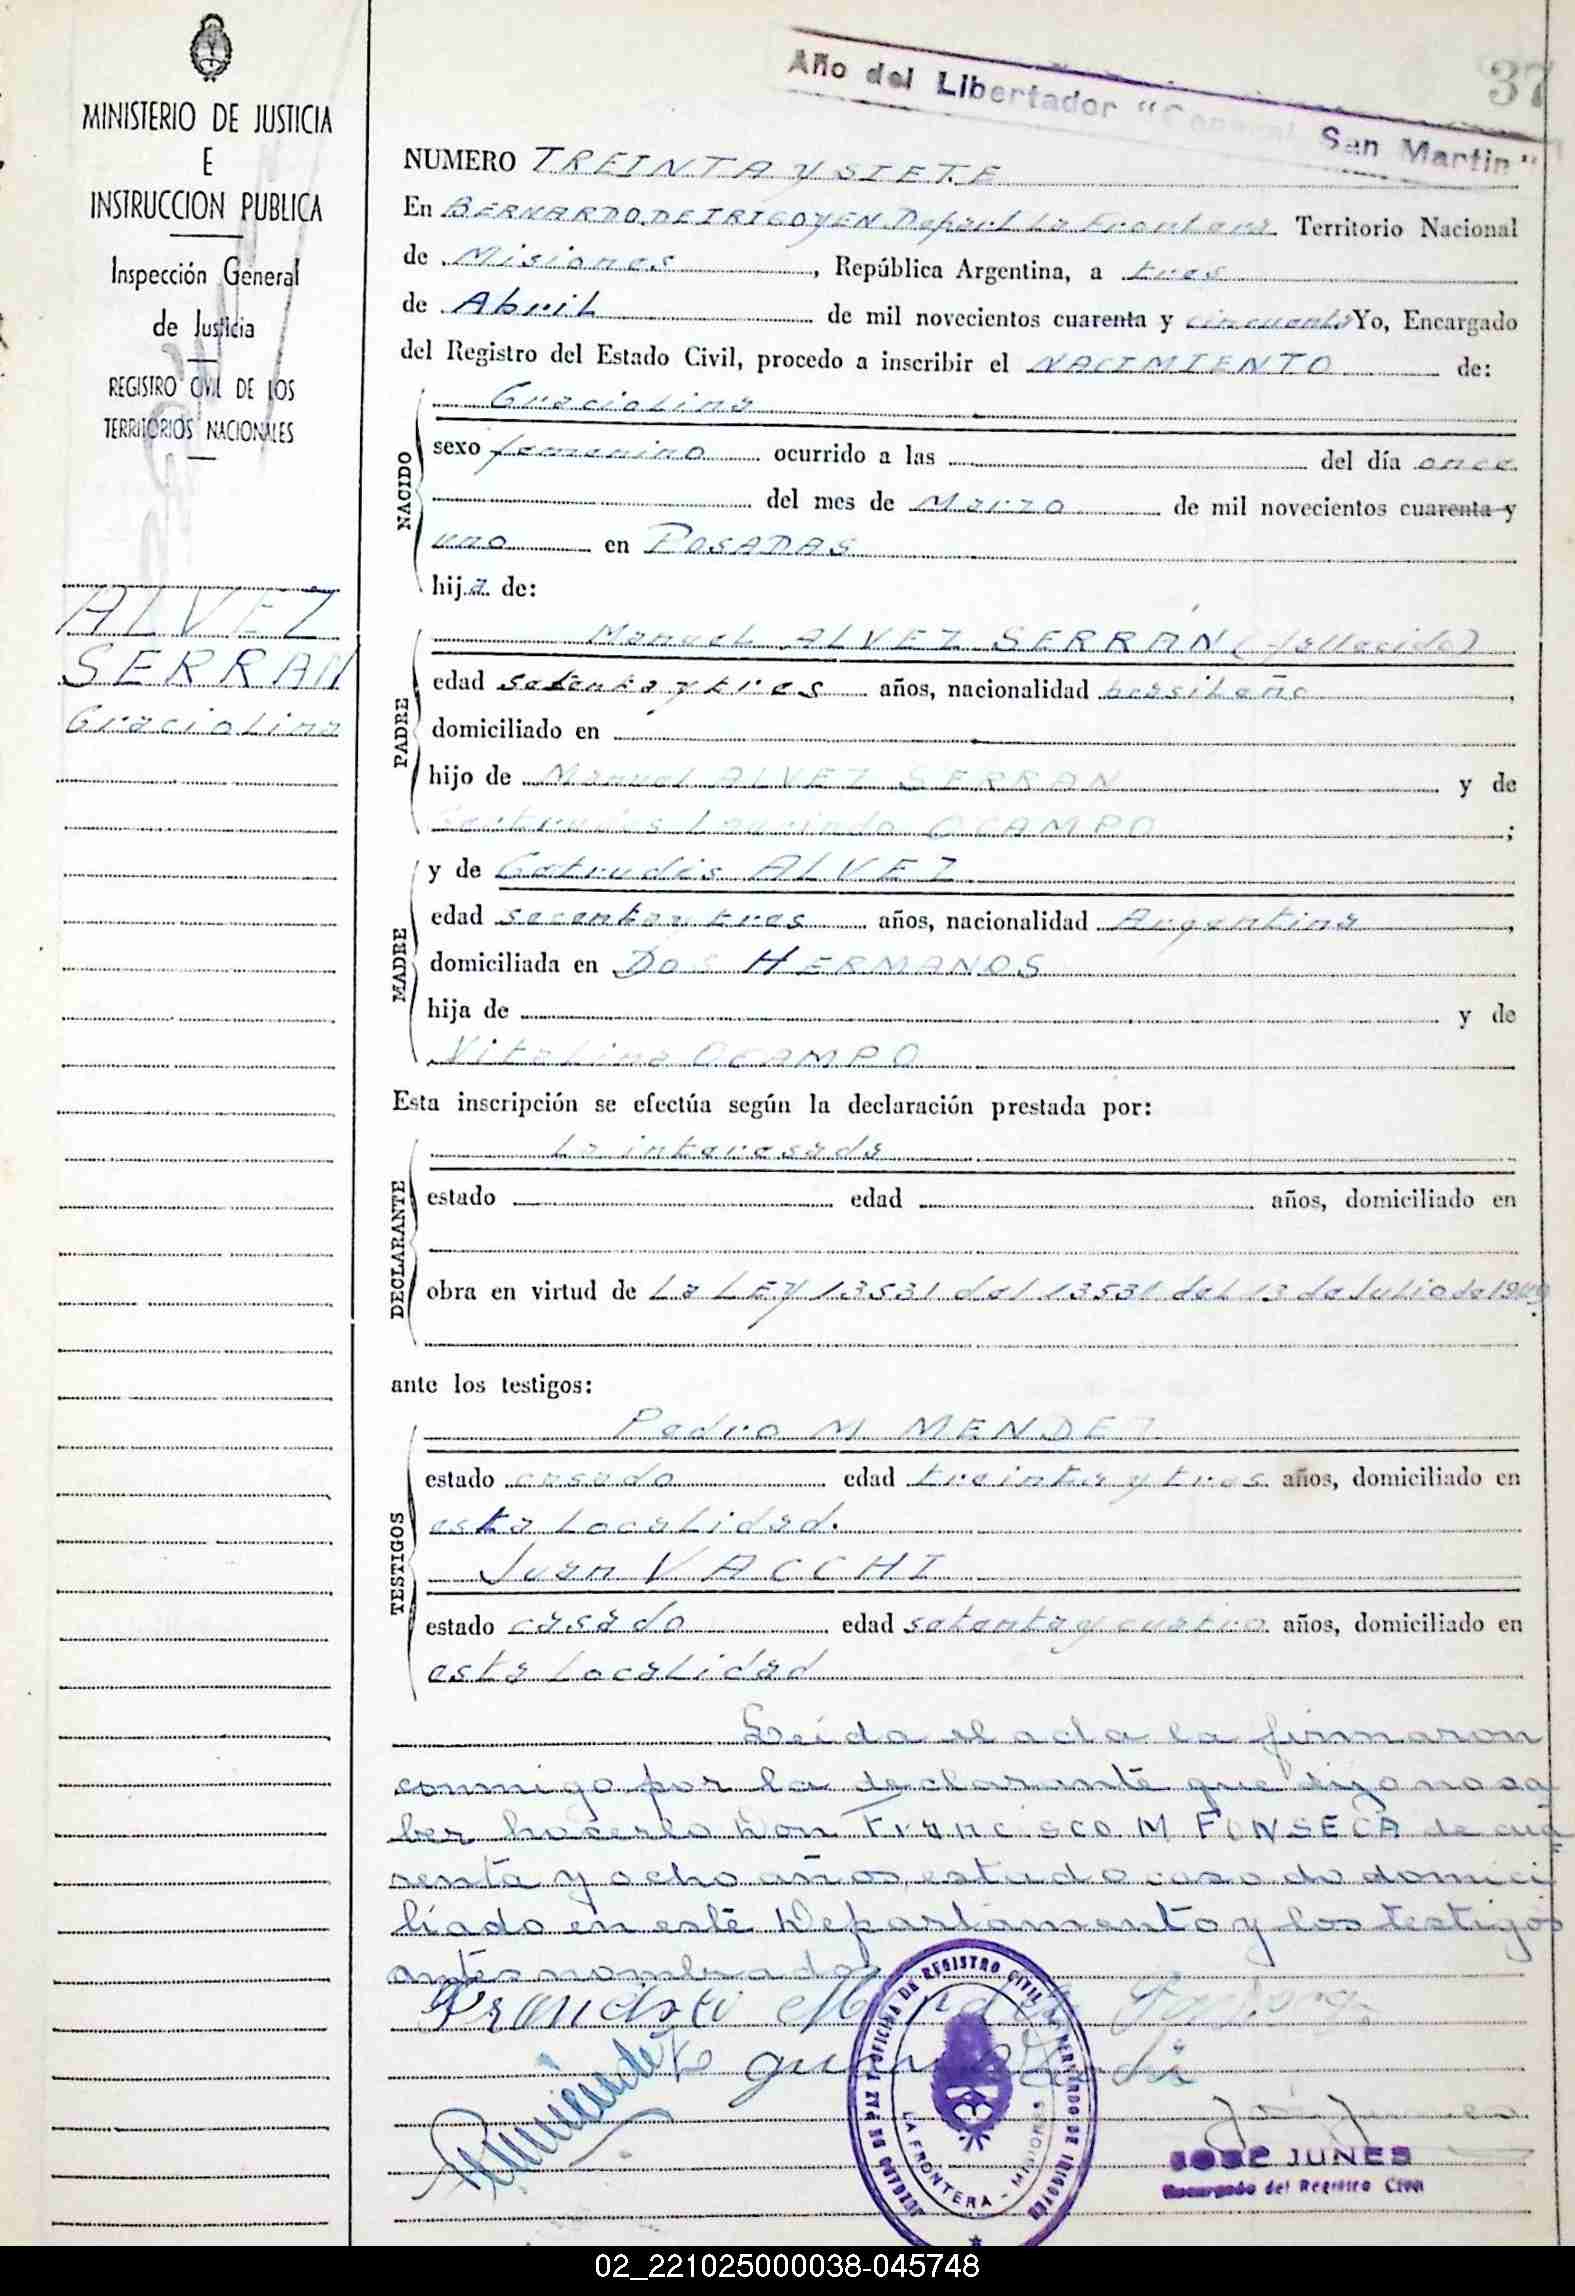 MINISTERIO DE JUSTICIA
E
INSTRUCCION PUBLICA
Inspección General
de Justicia
REGISTRO CIVIL DE LOS
TERRITORIOS NACIONALES
ALVEZ
SERRAN
Graciolina
Año del Libertador "General San Martin"
37
NUMERO TREINTA Y SIETE
En BERNARDO DE IRIGOYEN Depart La Frontera Territorio Nacional
de Misiones, República Argentina, a tres
de Abril de mil novecientos cuarenta y cincuenta Yo, Encargado
del Registro del Estado Civil, procedo a inscribir el NACIMIENTO de:
NACIDO
Graciolina
sexo femenino ocurrido a las del día once
del mes de Marzo de mil novecientos cuarenta y
uno en POSADAS
hija de:
PADRE
Manuel ALVEZ SERRAN (fallecido)
edad setenta y tres años, nacionalidad brasileño,
domiciliado en
hijo de Manuel ALVEZ SERRAN y de
OCAMPO;
MADRE
y de Getrudis ALVEZ
edad secenta y tres años, nacionalidad Argentina,
domiciliada en DOS HERMANOS
hija de y de
Vitalina OCAMPO
Esta inscripción se efectúa según la declaración prestada por:
DECLARANTE
La interesada
estado edad años, domiciliado en
obra en virtud de La LEY 13531 del 13531 del 13 de Julio de 1949.
ante los testigos:
TESTIGOS
Pedro M MENDEZ
estado casado edad treinta y tres años, domiciliado en
esta Localidad.
Juan VACCHI
estado casado edad setenta y cuatro años, domiciliado en
esta Localidad
Leida el acta la firmaron
conmigo por la declarante que dijo no sa
ber hacerlo Don Francisco M FONSECA de cua
renta y ocho años, estado casado domici
liado en este Departamento y los testigos
antes nombrados
Francisco
JUZGADO DE PAZ Y OFICINA DE REGISTRO CIVIL BERNARDO DE IRIGOYEN
LA FRONTERA - MISIONES
JOSE JUNES
Encargado del Registro Civil
02_221025000038-045748